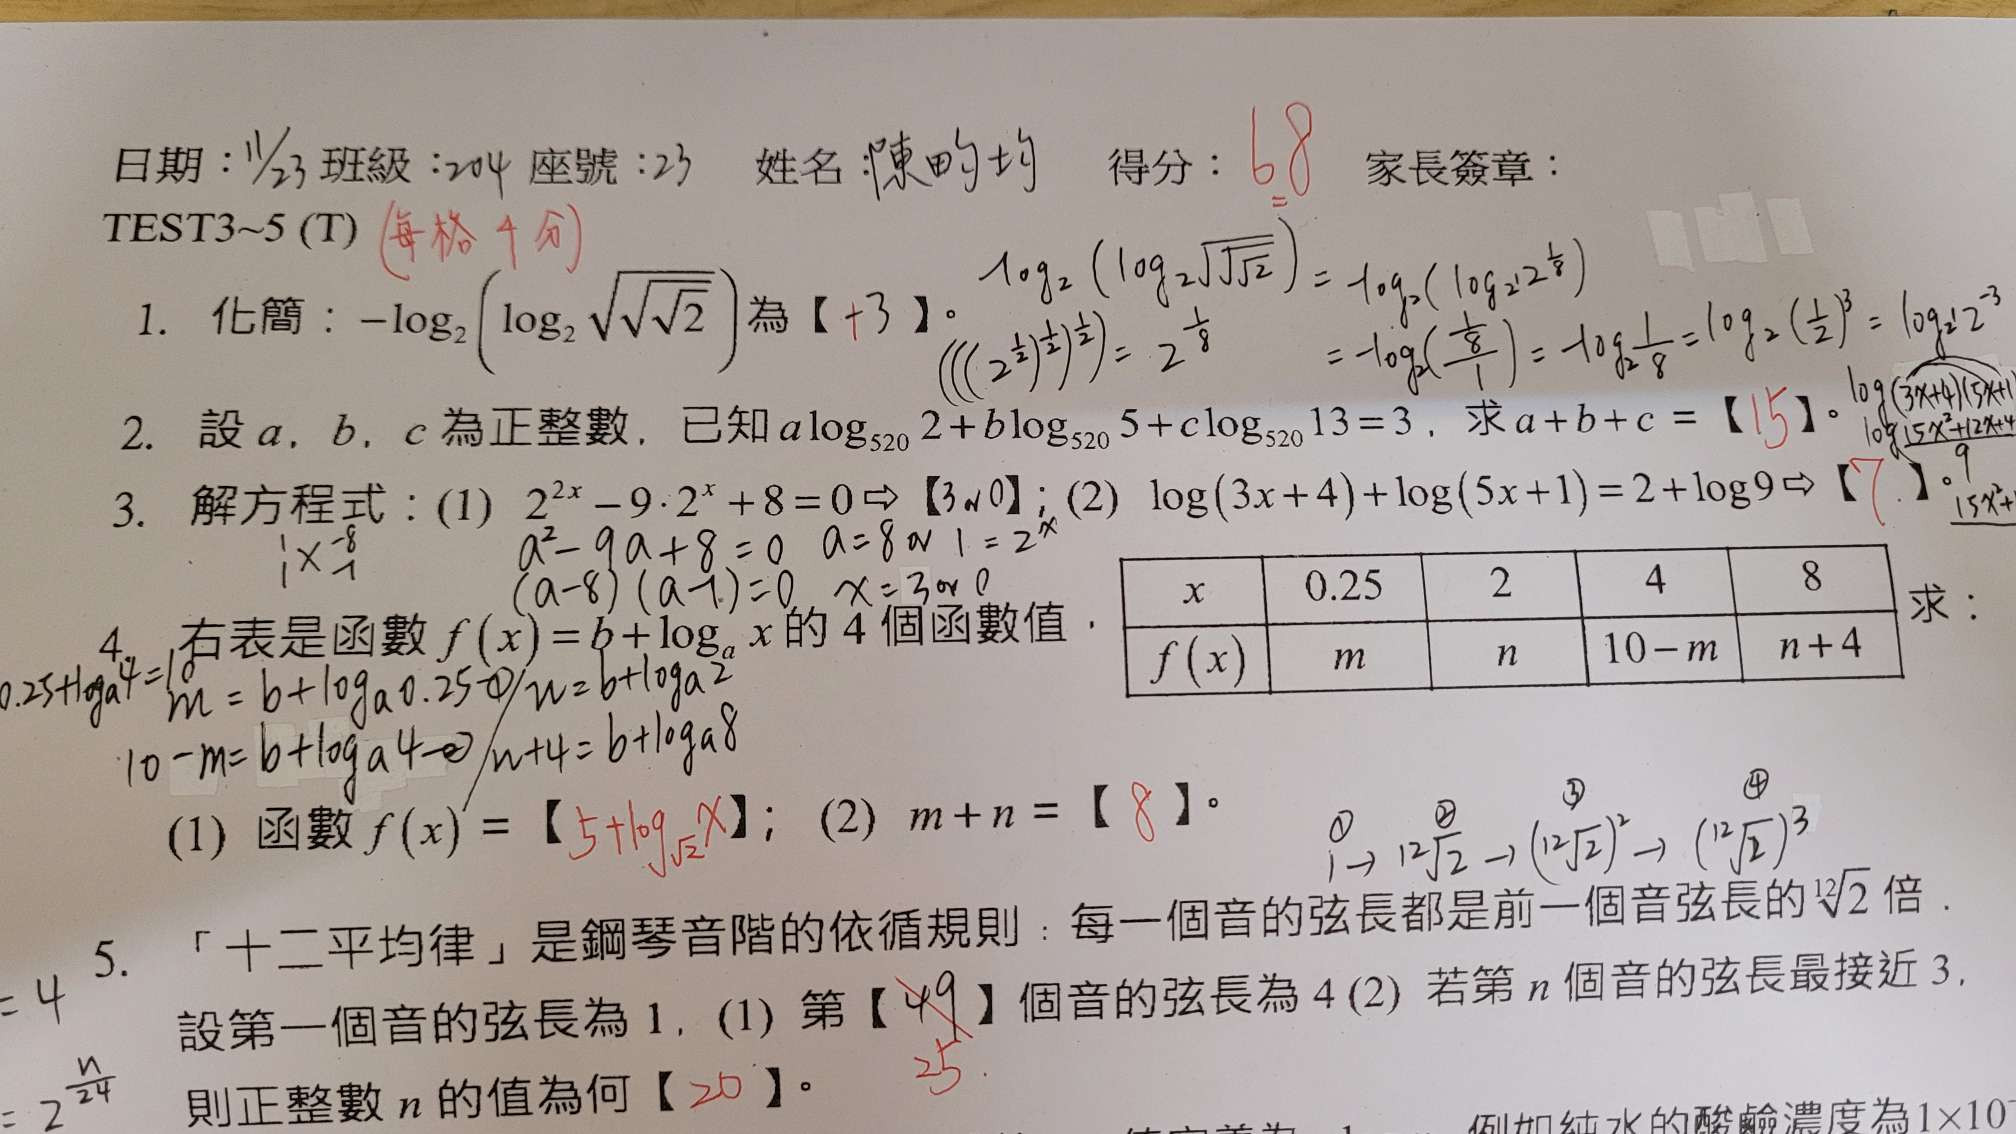 日期：11/23 班級：204 座號：23 姓名：陳畇均 得分：68 家長簽章：
TEST3~5 (T) (每格4分)
log₂(log₂√√√2) = -log₂(log₂2^(1/8))
1. 化簡：-log₂(log₂√√√2)為【+3】。
(((2^(1/2))^(1/2))^(1/2)) = 2^(1/8)
= -log₂((1/8)/1) = -log₂(1/8) = log₂(1/2)³ = log₂2⁻³
log(3x+4)(5x+1
2. 設 a，b，c 為正整數，已知 a log₅₂₀ 2 + b log₅₂₀ 5 + c log₅₂₀ 13 = 3，求 a + b + c = 【15】。
log 15x²+12x+4
9
3. 解方程式：(1) 2^(2x) - 9·2^x + 8 = 0 ⇨【3 or 0】；(2) log(3x+4) + log(5x+1) = 2 + log9 ⇨【7】。
15x²+
1 × -8
1 -1
a² - 9a + 8 = 0 a = 8 or 1 = 2^x
(a-8)(a-1) = 0 x = 3 or 0
4. 右表是函數 f(x) = b + logₐ x 的 4 個函數值，
x 0.25 2 4 8
f(x) m n 10-m n+4
求：
0.25+logₐ4=10
m = b + logₐ0.25 -① / n = b + logₐ2
10 - m = b + logₐ4 -② / n+4 = b + logₐ8
(1) 函數 f(x) = 【5+log_√2 x】；(2) m + n = 【8】。
① ② ③ ④
1 → ¹²√2 → (¹²√2)² → (¹²√2)³
5. 「十二平均律」是鋼琴音階的依循規則：每一個音的弦長都是前一個音弦長的 ¹²√2 倍．
= 4
設第一個音的弦長為 1，(1) 第【49】個音的弦長為 4 (2) 若第 n 個音的弦長最接近 3，
25.
= 2^(n/24)
則正整數 n 的值為何【20】。
例如純水的酸鹼濃度為1×10